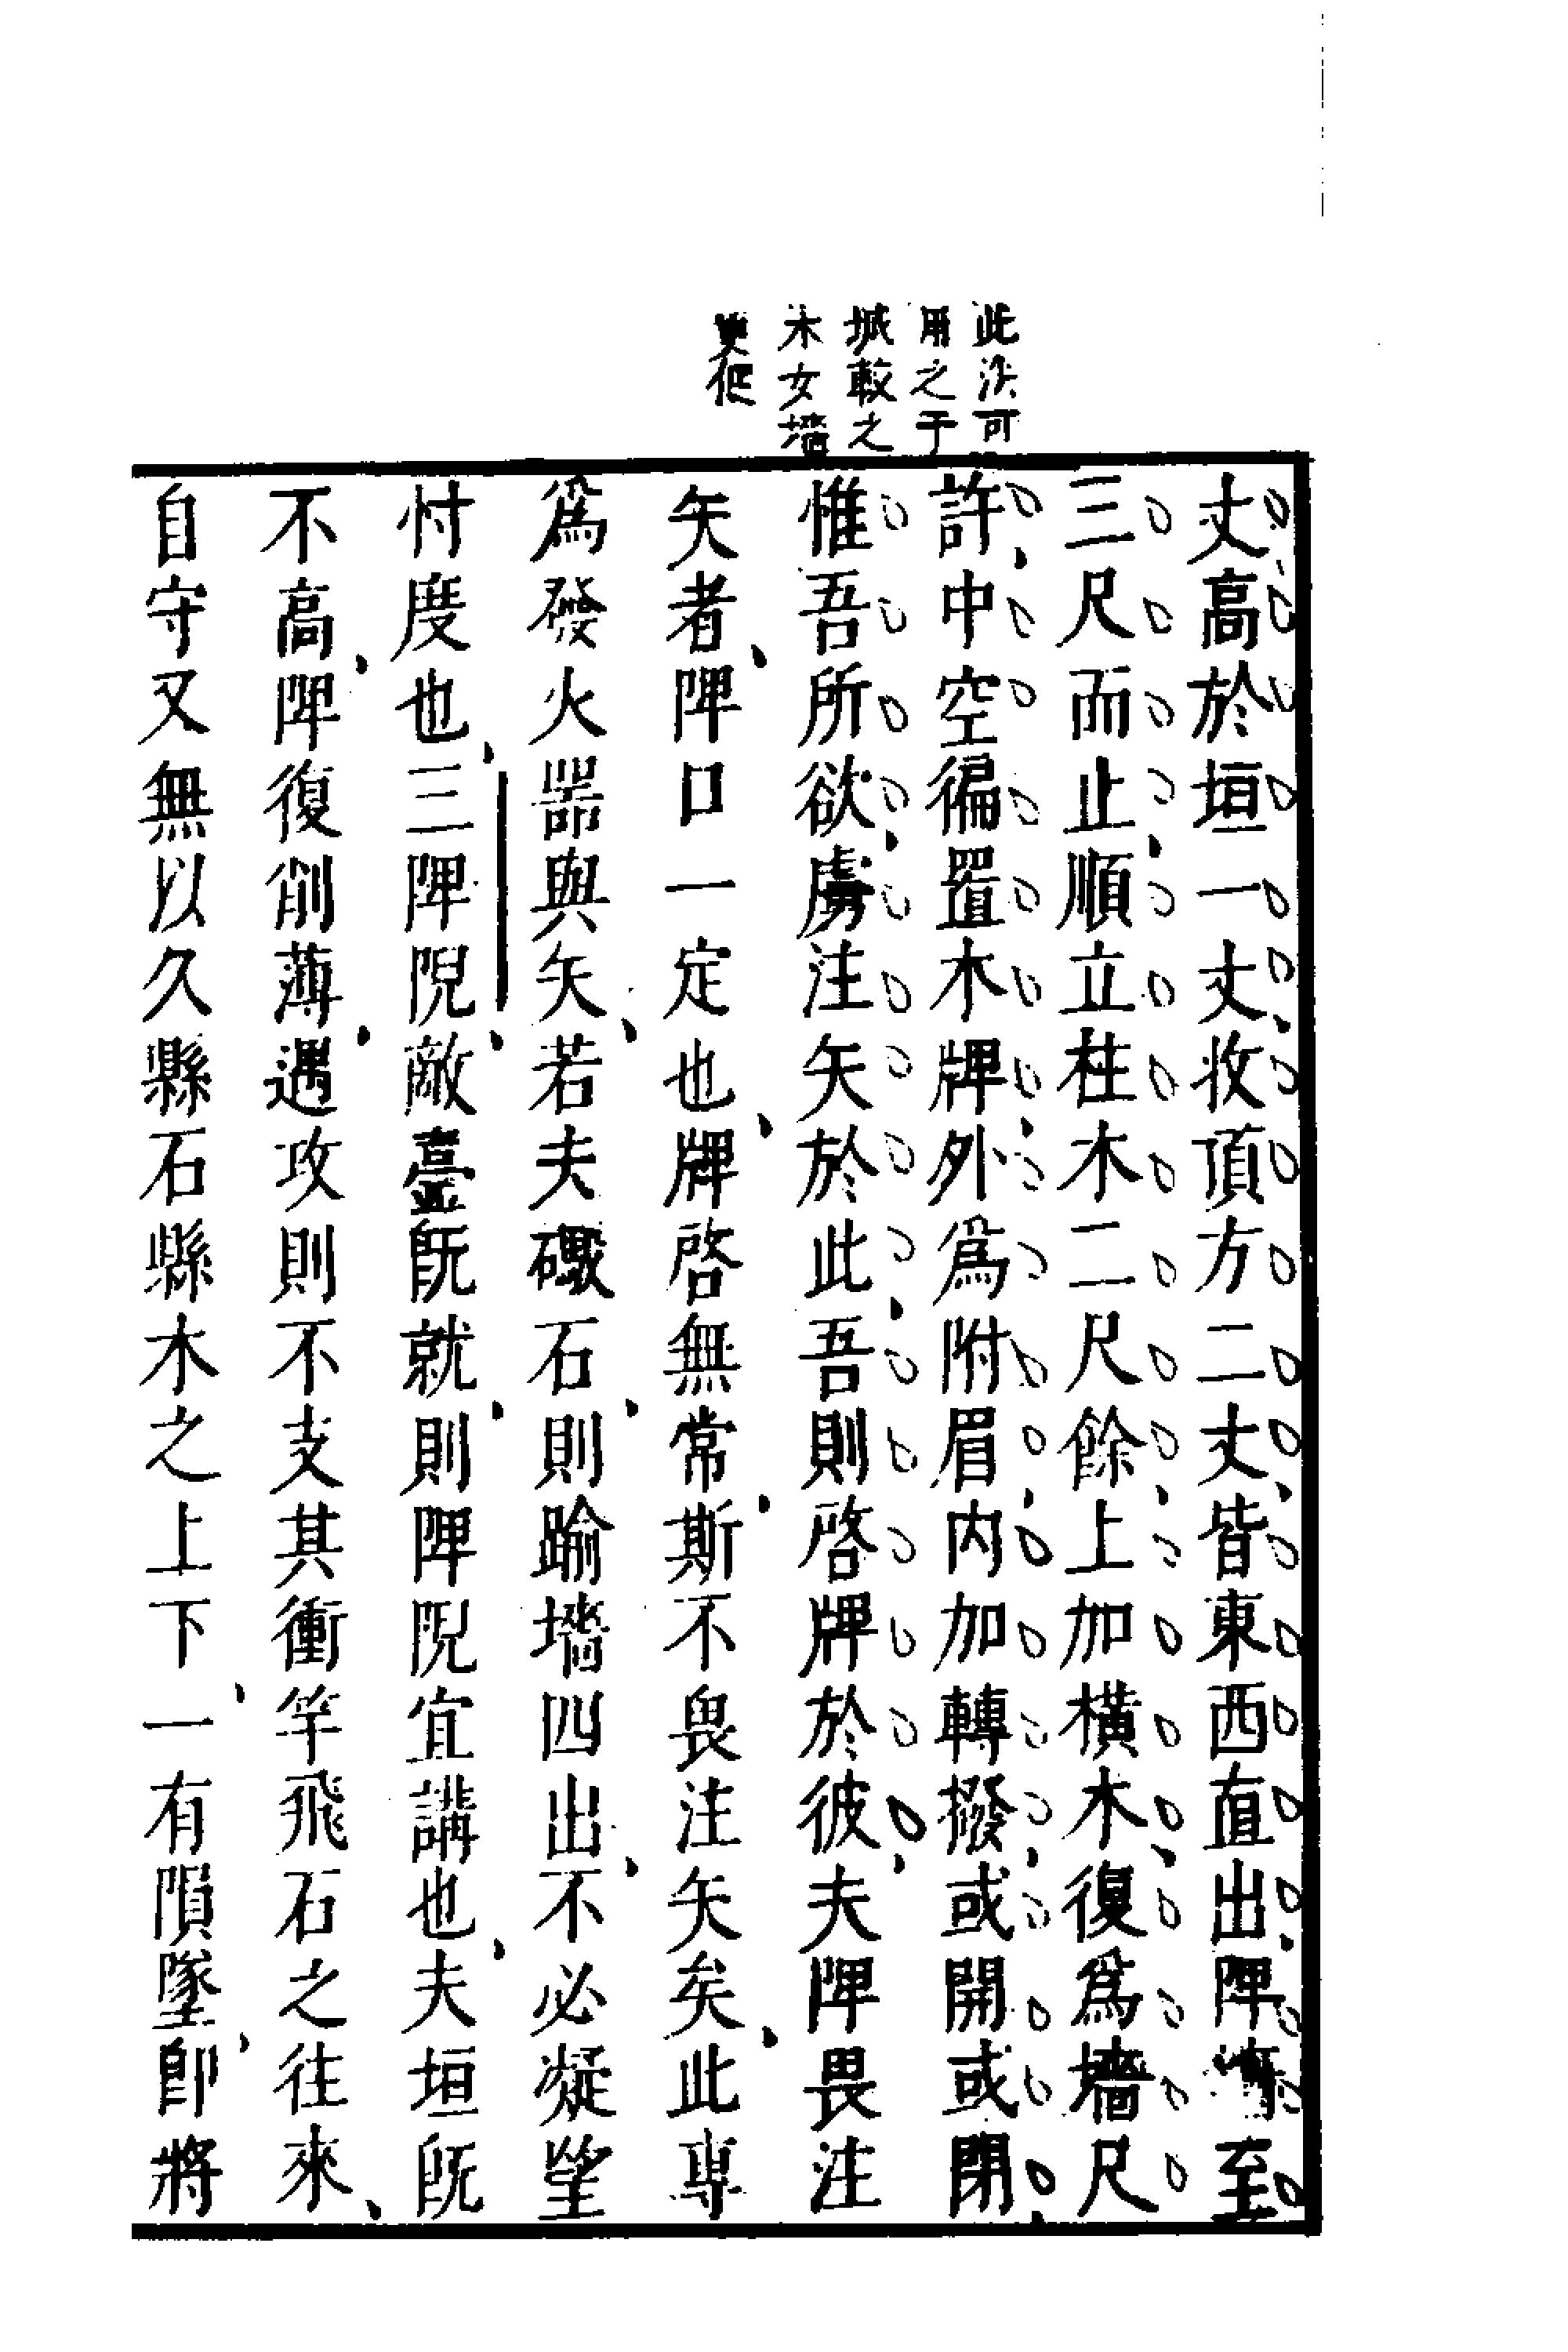 此法可
用之于
城較之
木女墻
更便
丈高於垣一丈收頂方二丈皆東西直出陴墻至
三尺而止順立柱木二尺餘上加橫木復爲墻尺
許中空徧置木牌外爲附眉內加轉撥或開或閉
惟吾所欲虜注矢於此吾則啓牌於彼夫陴畏注
矢者陴口一定也牌啓無常斯不畏注矢矣此專
爲發火噐與矢若夫礟石則踰墻四出不必凝望
忖度也三陴隉敵臺旣就則陴隉宜講也夫垣旣
不高陴復削薄遇攻則不支其衝竿飛石之往來
自守又無以久縣石縣木之上下一有隕墜卽將